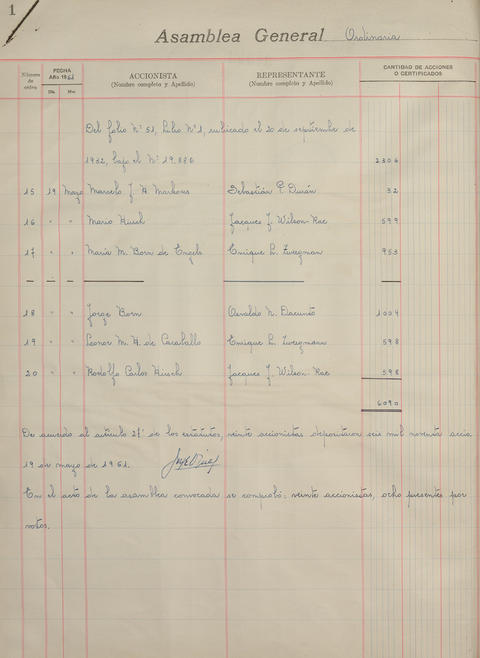 1
Asamblea General Ordinaria
Número de orden
FECHA Año 1961
Día Mes
ACCIONISTA (Nombre completo y Apellido)
REPRESENTANTE (Nombre completo y Apellido)
CANTIDAD DE ACCIONES O CERTIFICADOS
Del folio Nº 51, Libro Nº 1, rubricado el 20 de septiembre de
1932, bajo el Nº 19.886 2306
15 19 Mayo Marcelo J. A. Sebastián Durán 32
16 " " Mario Hirsch Jacques J. Wilson-Rae 599
17 " " María M. Born de Engels Enrique L. Zwegman 953
18 " " Jorge Born Osvaldo N. Dacunto 1004
19 " " Leonor M. H. de Caraballo Enrique L. Zwegmann 598
20 " " Rodolfo Carlos Hirsch Jacques J. Wilson-Rae 598
6090
De acuerdo al artículo 21º de los estatutos, veinte accionistas depositaron seis mil noventa accio
19 de mayo de 1961.
En el acto de la asamblea convocada se comprobó: veinte accionistas, ocho presentes por
votos.